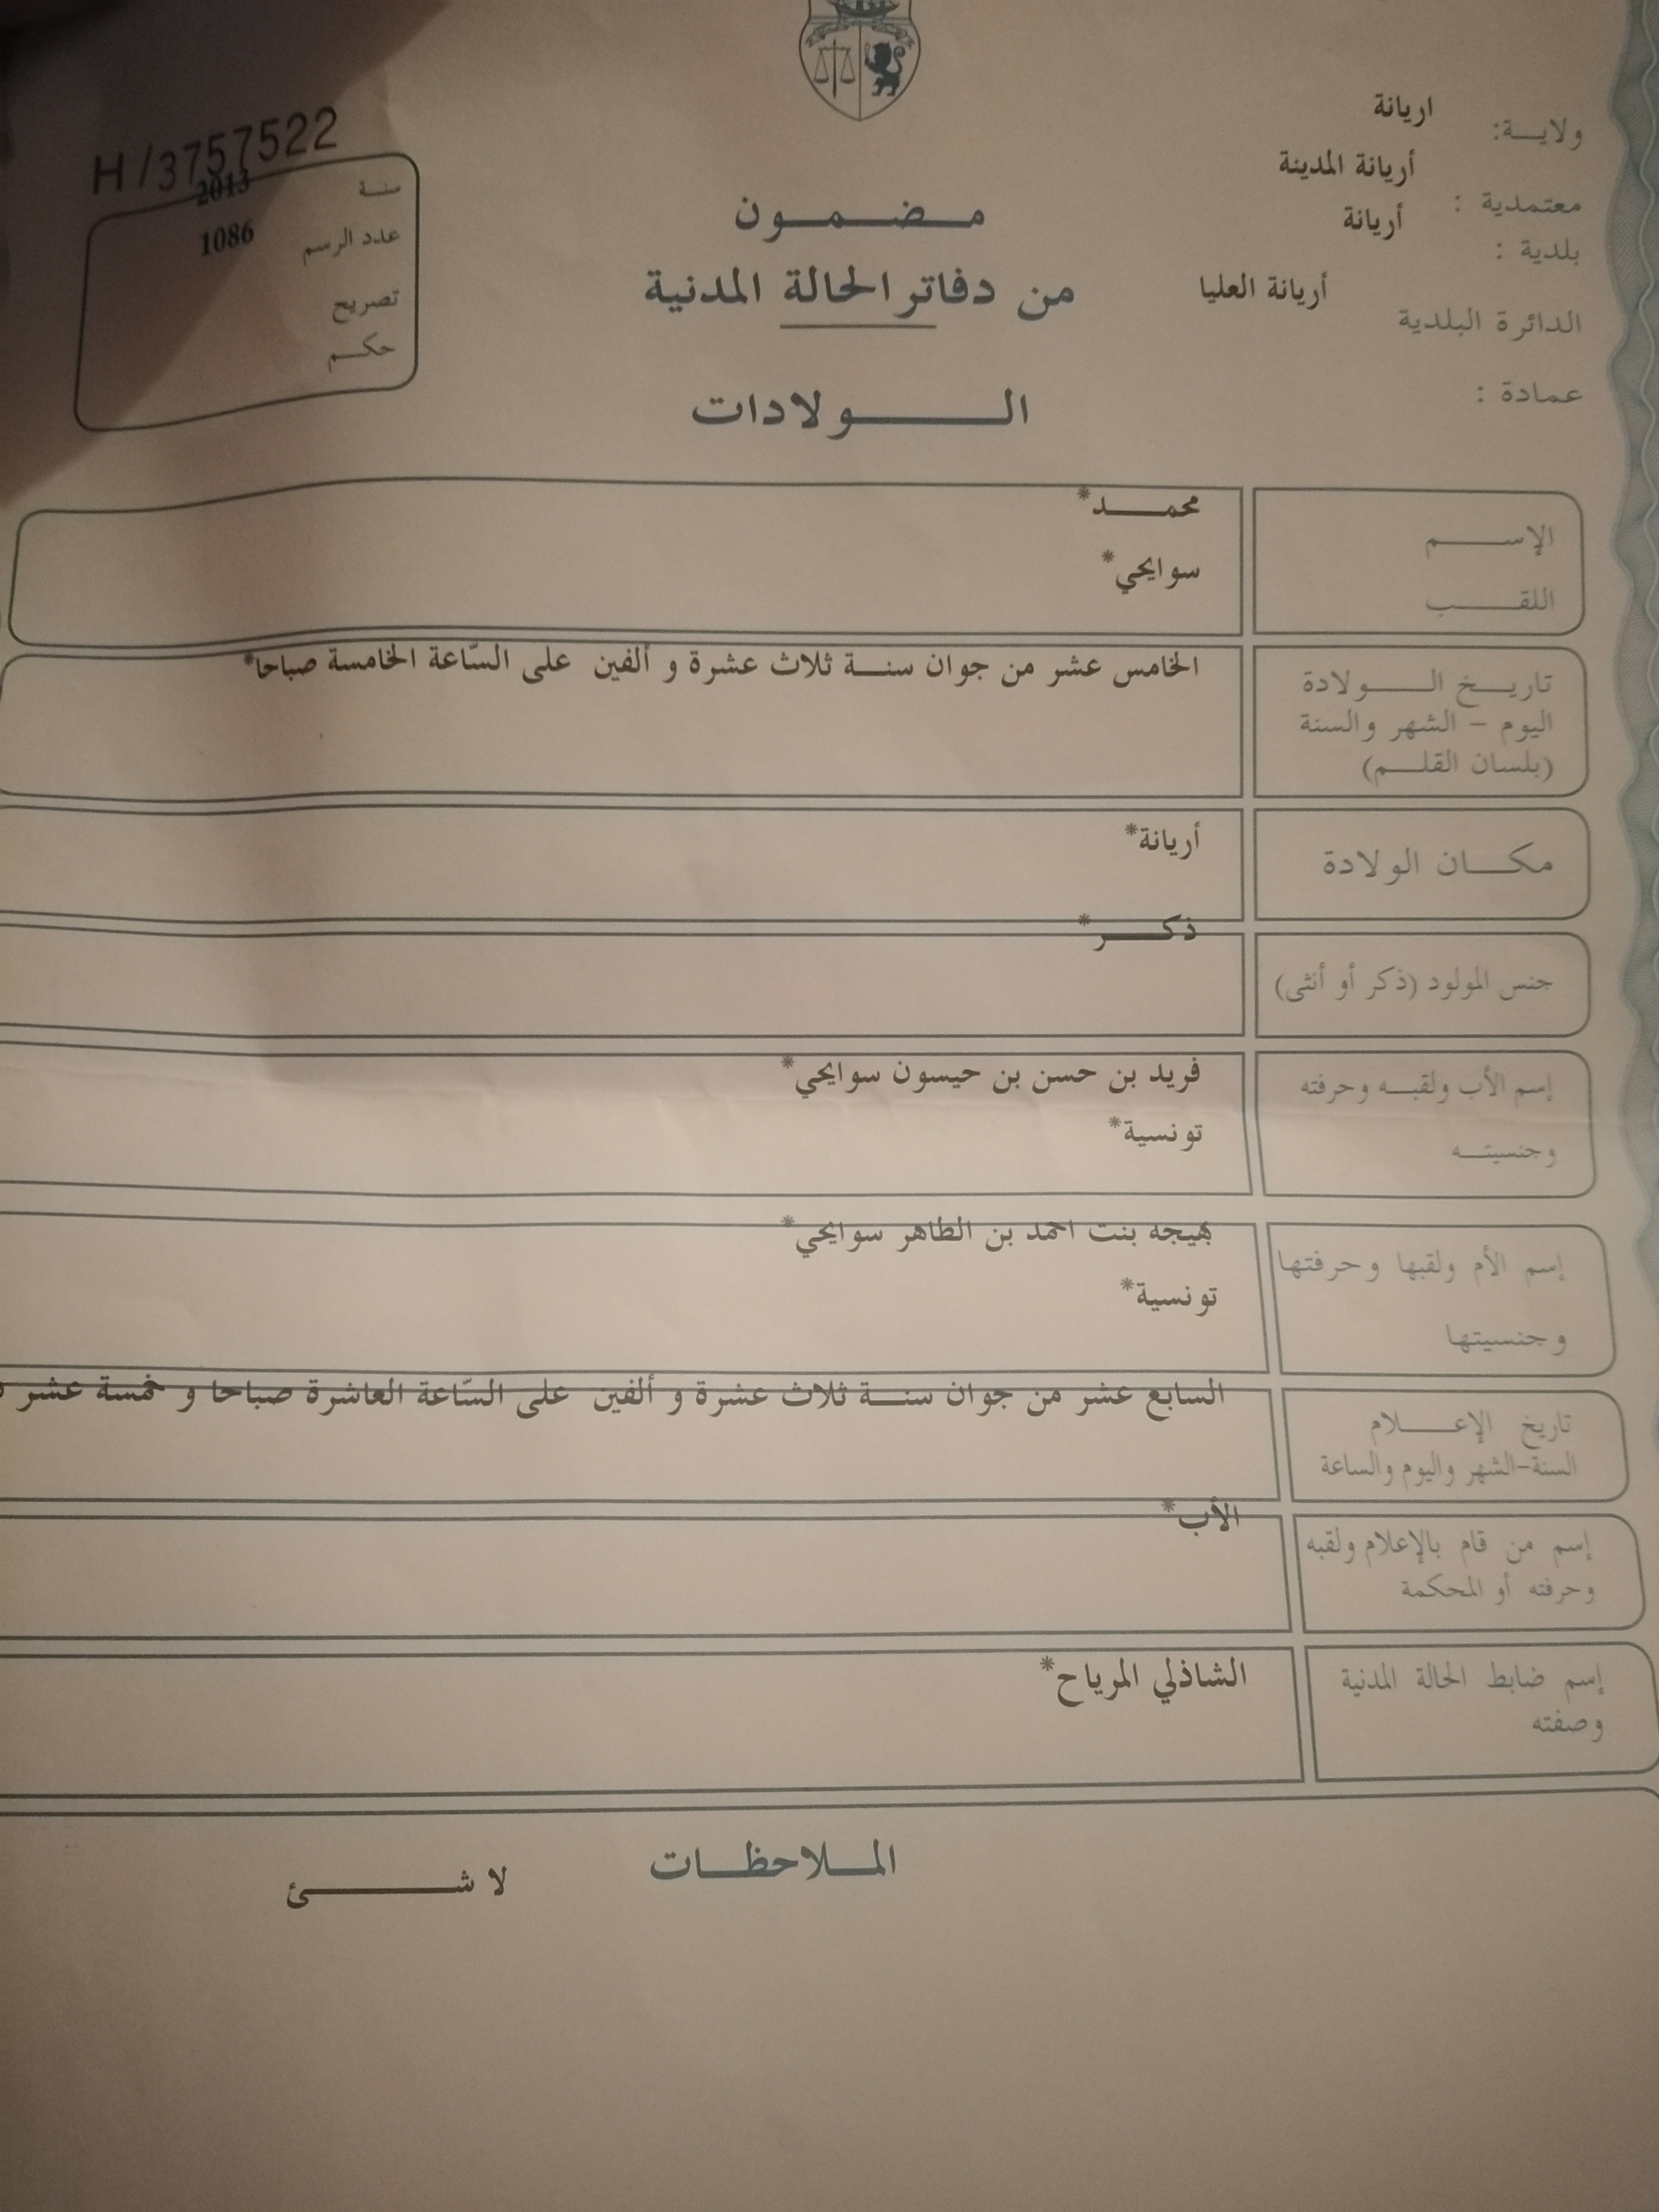 ولايـــة: اريانة
معتمدية : أريانة المدينة
بلدية : أريانة
الدائرة البلدية أريانة العليا
عمادة :
H/3757522
سنــة 2013
عدد الرسم 1086
تصريح
حكـــم
مـــضـــمـــون
من دفاتر الحالة المدنية
الـــــولادات
الإســــــم محمـــــد*
اللقــــــب سوايحي*
تاريـــخ الـــــولادة الخامس عشر من جوان سنـــة ثلاث عشرة و ألفين على السّاعة الخامسة صباحا*
اليوم – الشهر والسنة
(بلسان القلـــم)
مكـــان الولادة أريانة*
جنس المولود (ذكر أو أنثى) ذكـــــر*
إسم الأب ولقبـــه وحرفته فريد بن حسن بن حيسون سوايحي*
وجنسيتـــه تونسية*
إسم الأم ولقبها وحرفتها بهيجه بنت احمد بن الطاهر سوايحي*
وجنسيتها تونسية*
تاريخ الإعـــــلام السابع عشر من جوان سنـــة ثلاث عشرة و ألفين على السّاعة العاشرة صباحا و خمسة عشر
السنة-الشهر واليوم والساعة
إسم من قام بالإعلام ولقبه الأب*
وحرفته أو المحكمة
إسم ضابط الحالة المدنية الشاذلي المرياح*
وصفته
المـــلاحظـــات
لا شـــــــئ